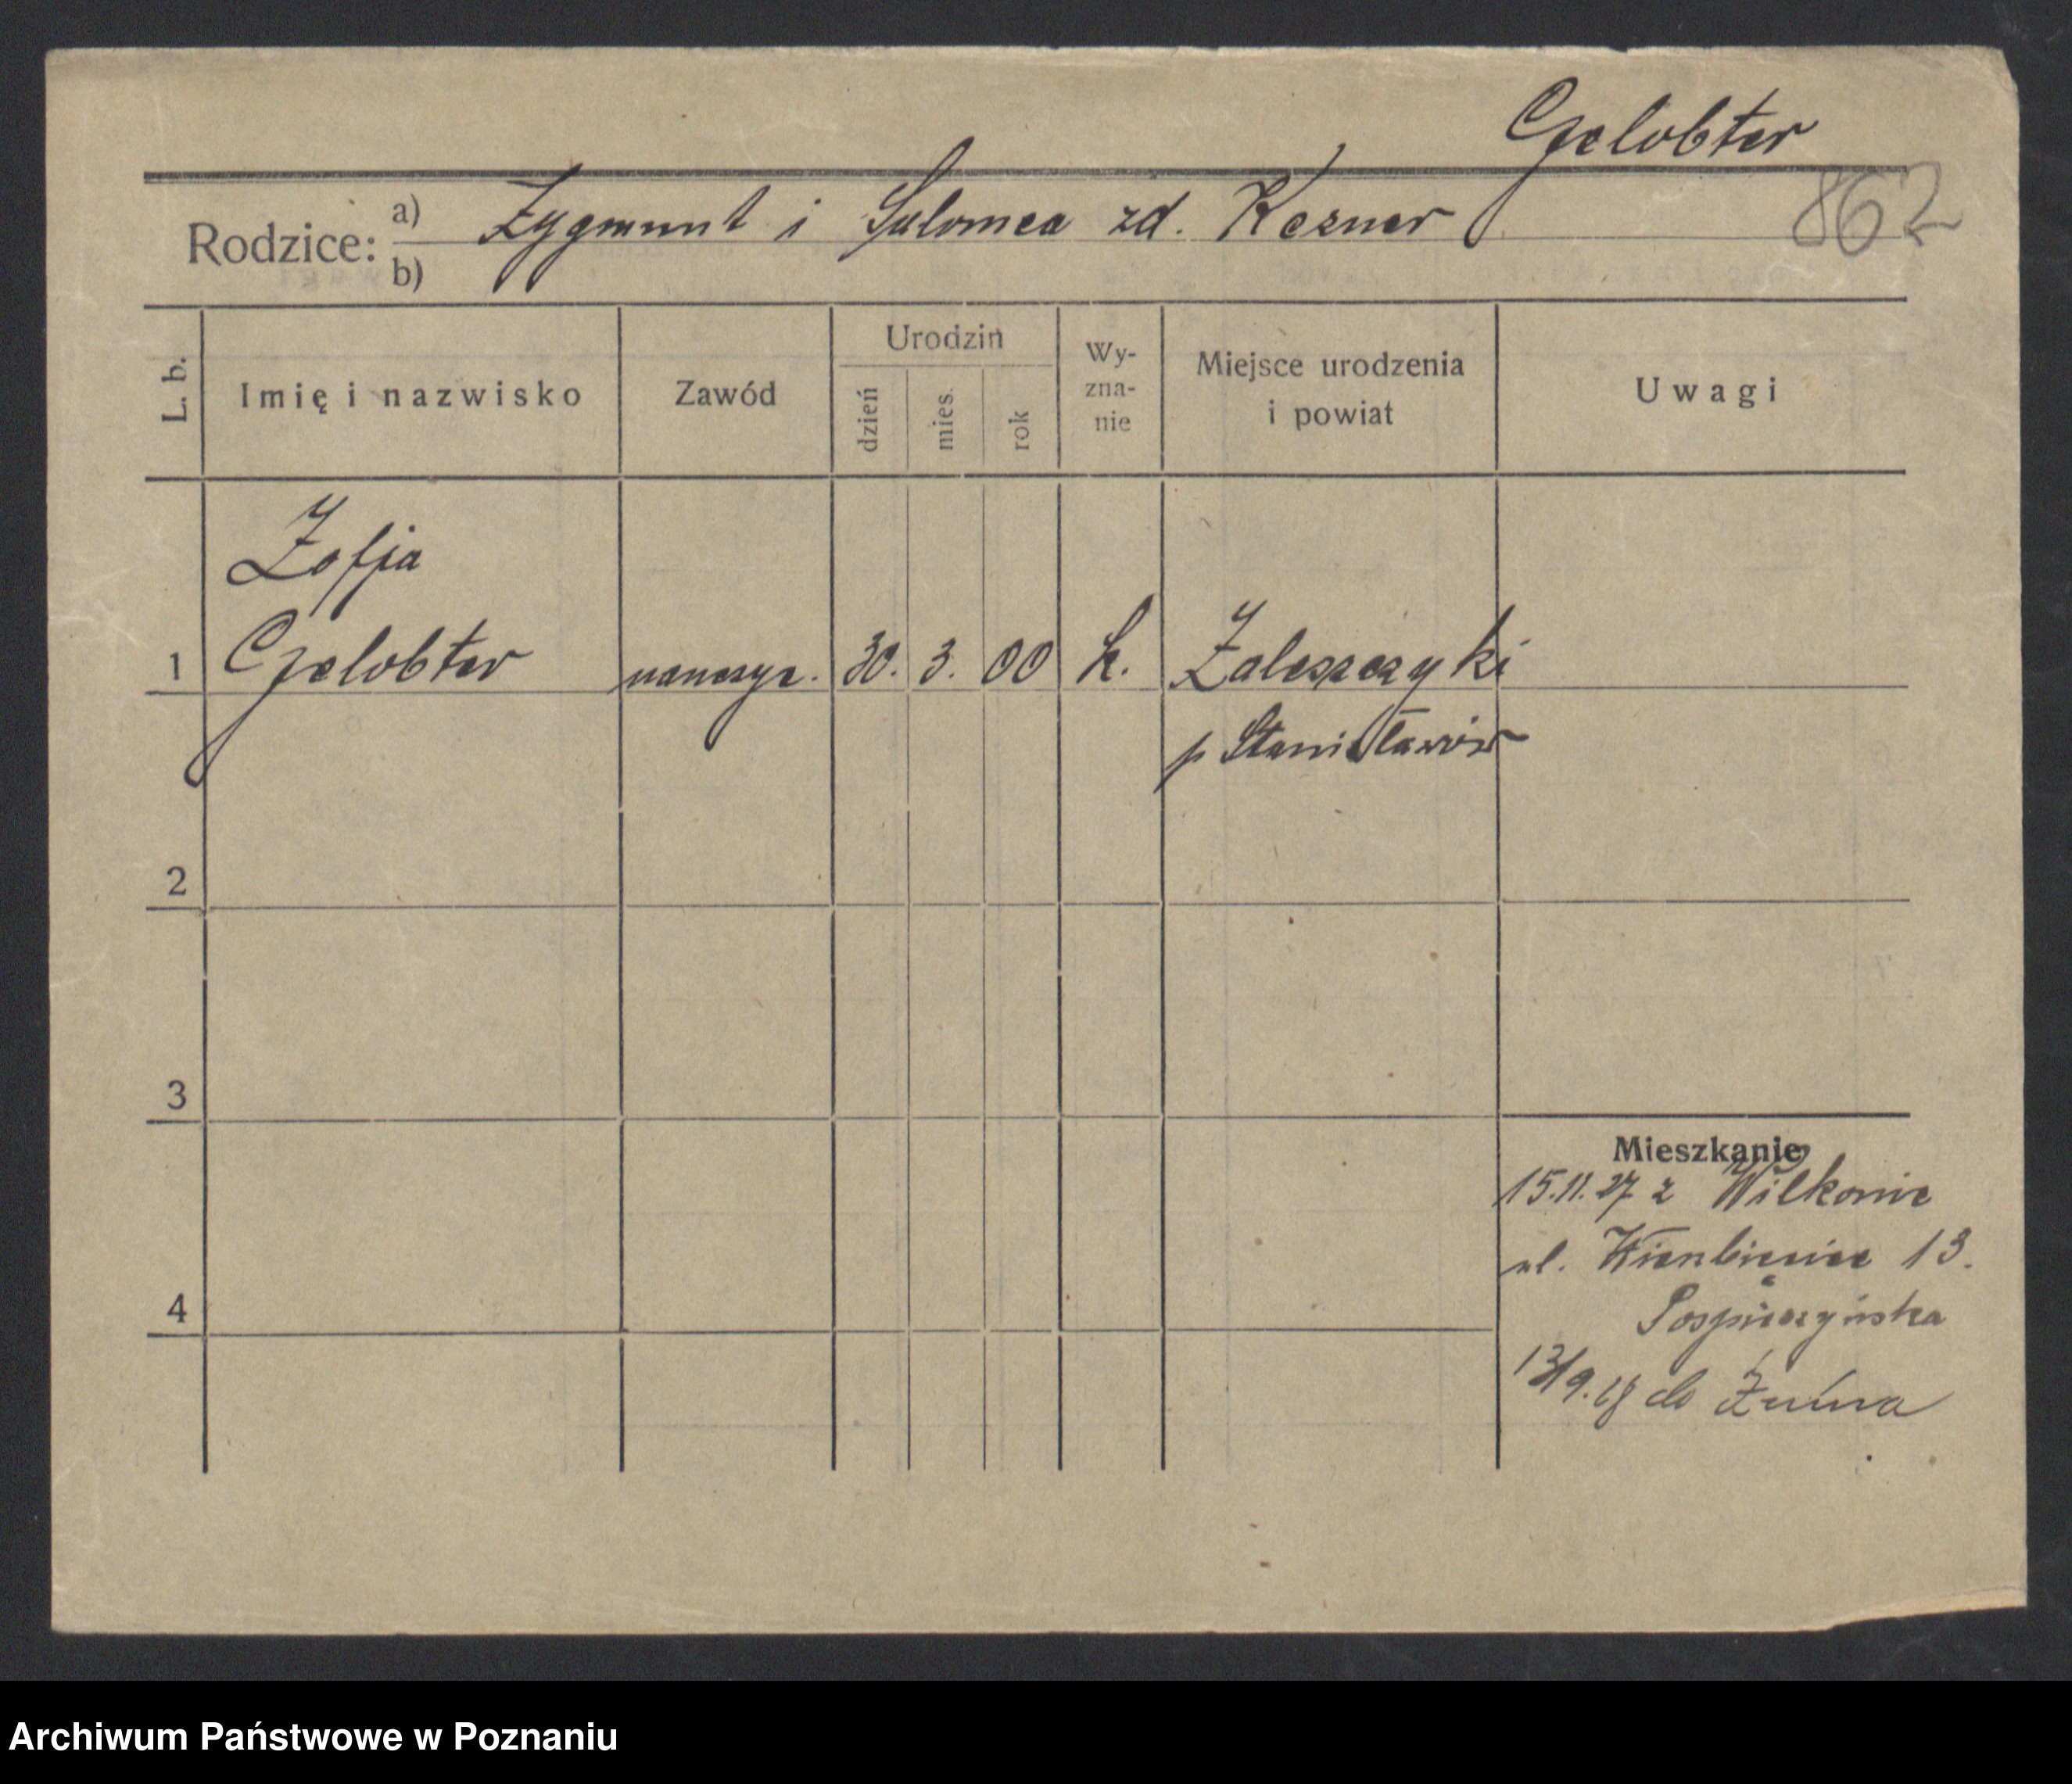 Gelobter
862
Rodzice: a) Zygmunt i Salomea zd. Kesner
b)
L. b.
Imię i nazwisko
Zawód
Urodzin
dzień
mies.
rok
Wy-
zna-
nie
Miejsce urodzenia
i powiat
Uwagi
Zofja
1 Gelobter nauczyc. 30. 3. 00 k. Zaleszczyki
p Stanisławów
2
3
4
Mieszkanie
15.11.27 z Wilkonic
ul. 13.
13/9.28 do Żnina
Archiwum Państwowe w Poznaniu